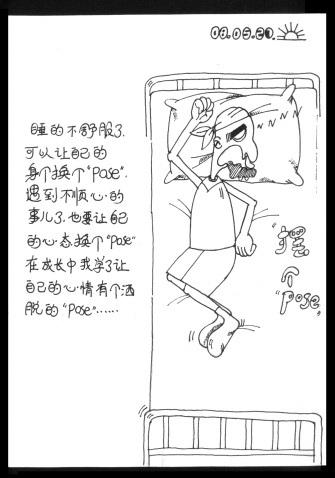 09.05.21.
睡的不舒服了.
可以让自己的
身个换个"Pose".
遇到不顺心的
事儿了.也要让自己
的心态换个"Pose"
在成长中我学了让
自己的心情有个洒
脱的"Pose"......
"摆
个
"Pose"